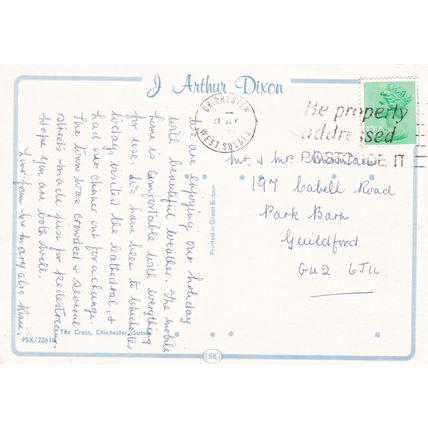 J Arthur Dixon
CHICHESTER
WEST SUSSEX
Be properly
addressed
POSTCODE IT
We are enjoying our holiday
with beautiful weather. The mobile
home is comfortable with everything
for use. We have been to Chichester
today, visited the Cathedral, &
had our dinner out for a change.
The town was crowded & several
streets made just for pedestrians.
Hope you are both well.
Love from
Mr. & Mrs
197 Cabell Road
Park Barn
Guildford
GU2 6JU
Printed in Great Britain
The Cross, Chichester, Sussex
PSX/22616
DRG